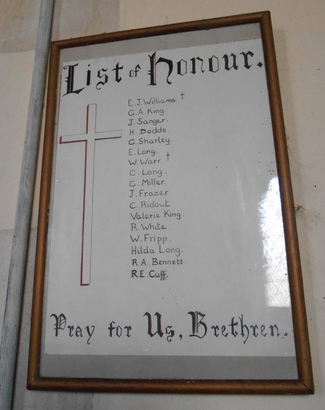 List of Honour.
E. J. Williams. †
G. A. King.
J. Sanger.
H. Dodds.
G. Sharley.
E. Long.
W. Warr †
C. Long.
C. Miller.
J. Frazer
C. Ridout
Valerie King.
R. White
W. Fripp
Hilda Long.
R. A. Bennett
R. E. Cuff.
Pray for Us, Brethren.